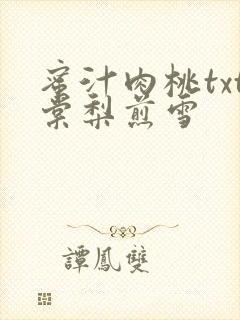 蜜汁肉桃txt
棠梨煎雪
譚鳳雙